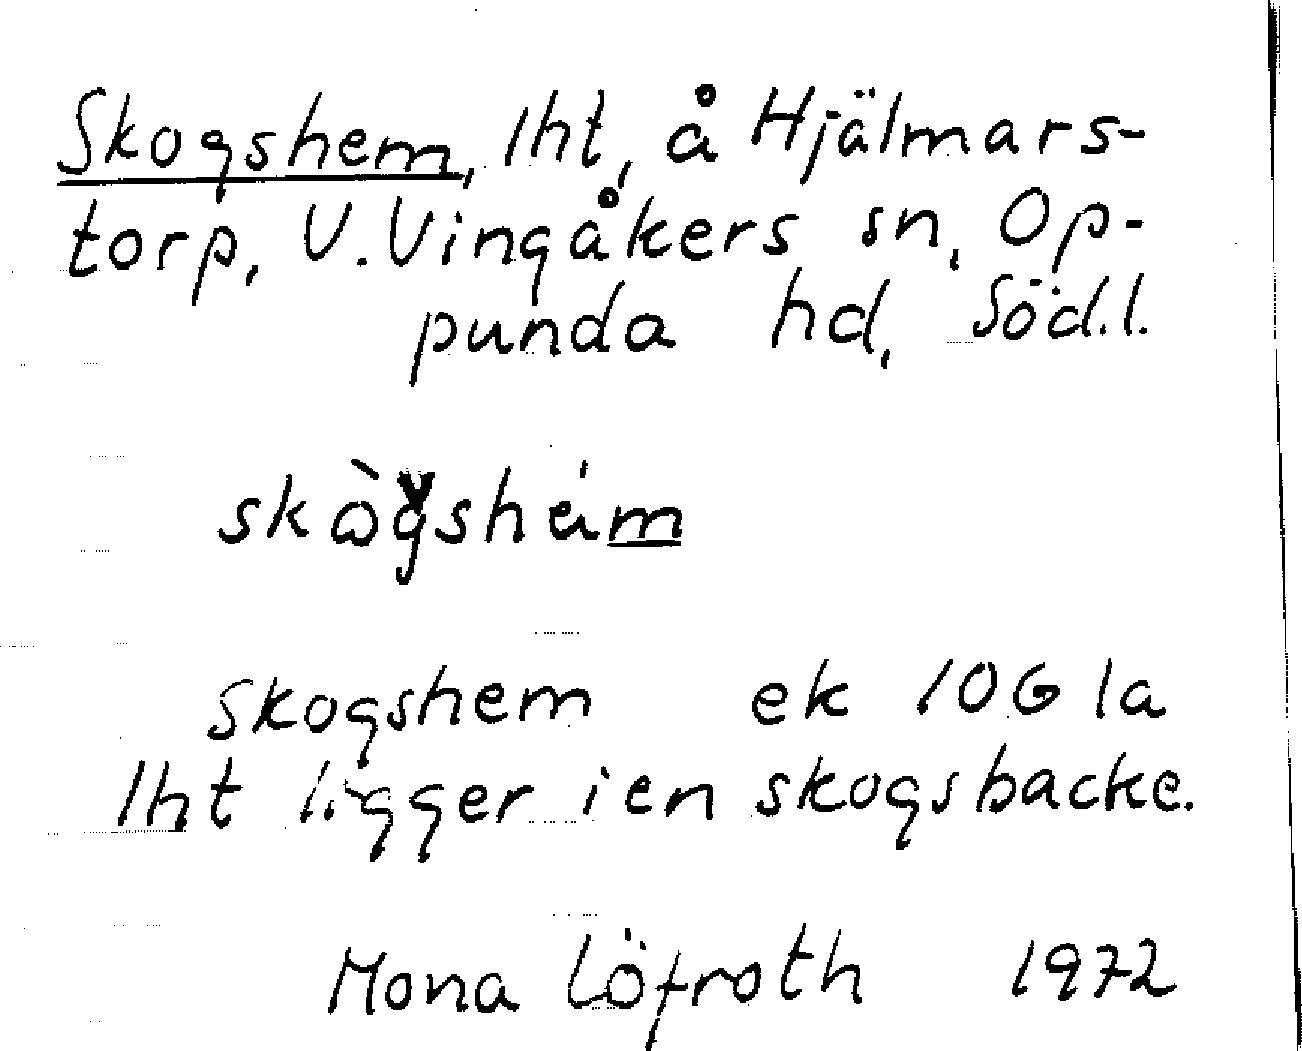 Skogshem, lht, å Hjälmars-
torp, V. Vingåkers sn, Op-
punda hd, Södl.
Skogshem ek 10G 1a
lht ligger i en skogsbacke.
Mona Löfroth 1972